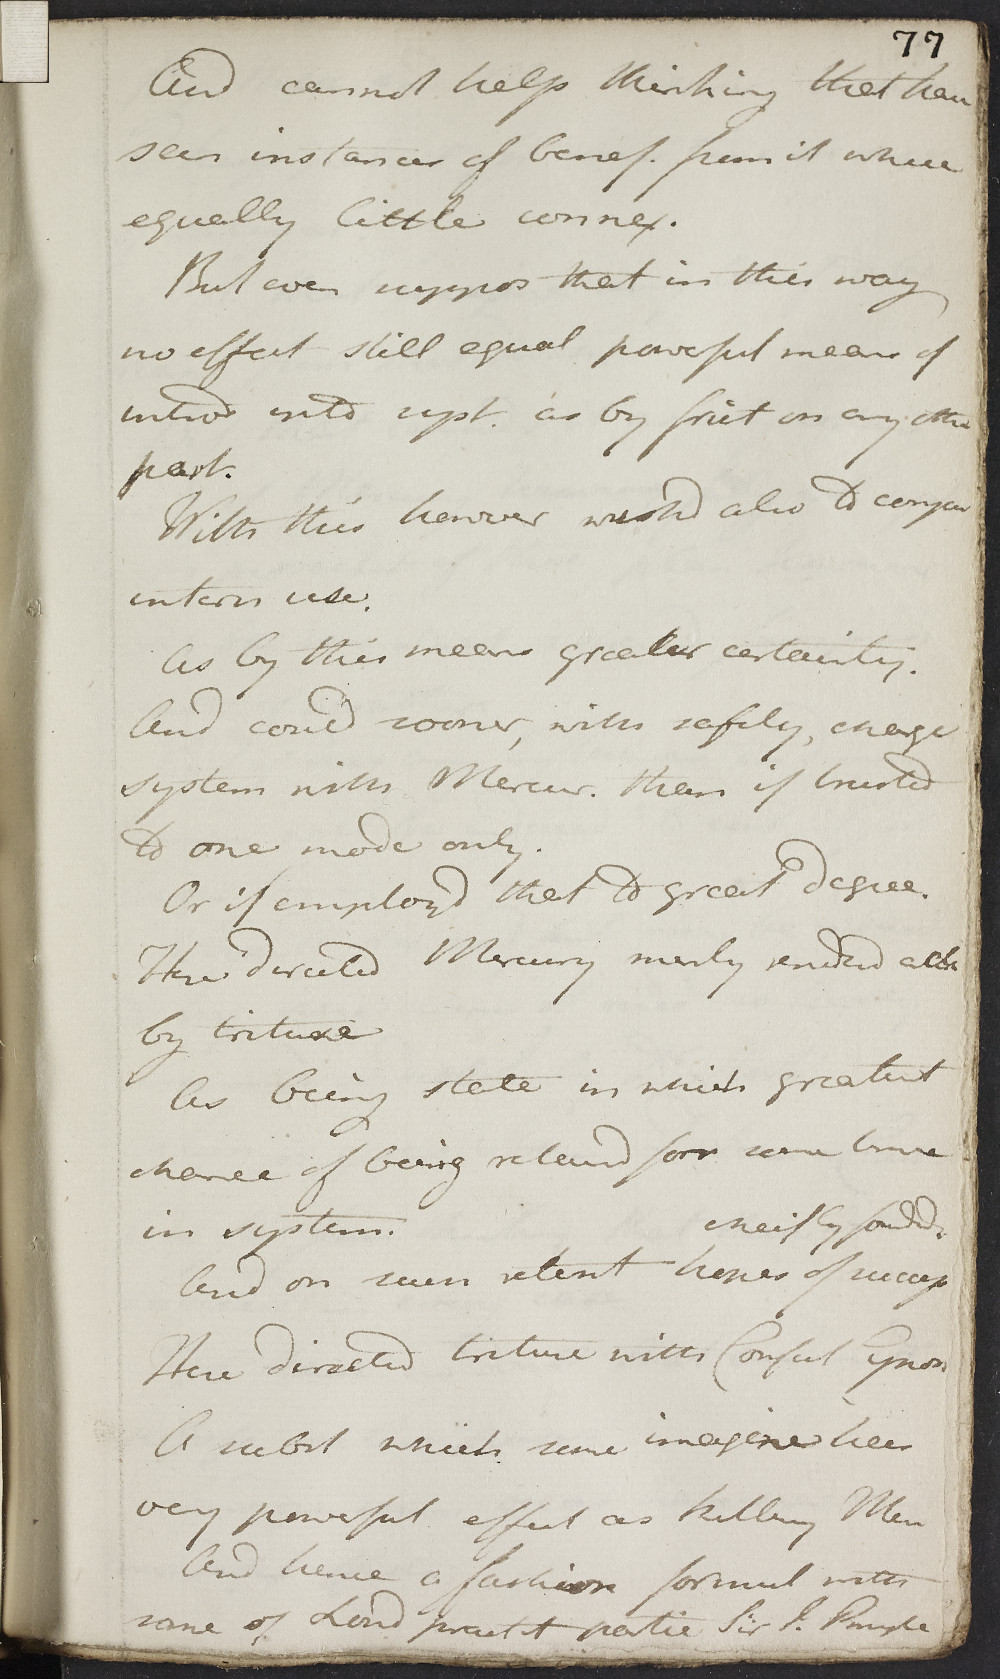 77
And cannot help thinking that hav
seen instances of benef. from it where
equally little connex.
But even suppos that in this way
no effect still equal powerful means of
introd into syst. as by frict on any othe
part.
With this however wishd also to conjoin
intern use.
As by this means greater certainty.
And coud sooner, with safety, charge
system with Mercur. than if trusted
to one mode only.
Or if employd that to great degree.
Here directed Mercury merely rendrd activ
by triture
As being state in which greatest
chance of being retaind for some time
in system.
cheifly foundd.
And on such retent hopes of success
Here directed triture with Conserv Cynosb
A subst which some imagine has
very powerful effect as killing Mer
And hence a fashion formul with
some of Lond practit partic Sir J. Pringle